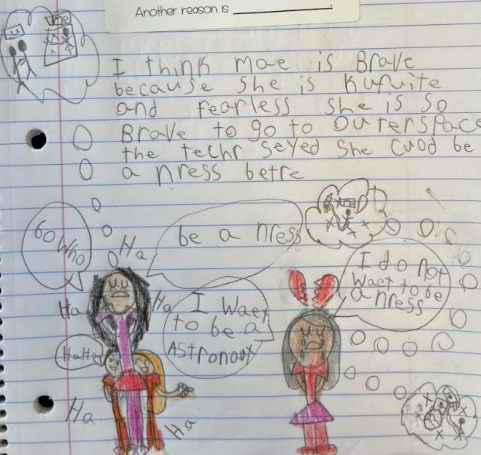 Another reason is ___.
I think mae is Brave
because she is Kuruite
and fearless she is so
Brave to go to outerspace
the techr seyed she cuod be
a nress betre
60 Who
Ha
be a nress
I do not
waet to be
a nress
Ha
Ha
I waet
to be a
AStronaux
HaHa
Ha
Ha